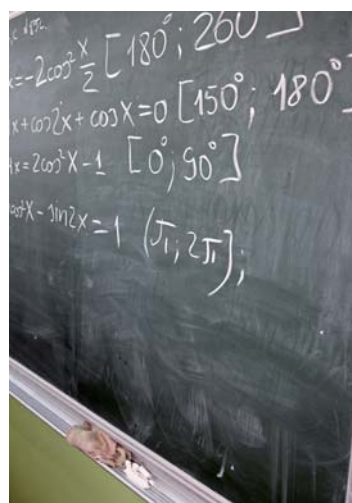 x=-2cos²x/2 [180°; 260°]
x+cos2x+cosx=0 [150°; 180°]
x=2cos²x-1 [0°; 90°]
cos²x-sin2x=1 (π; 2π];